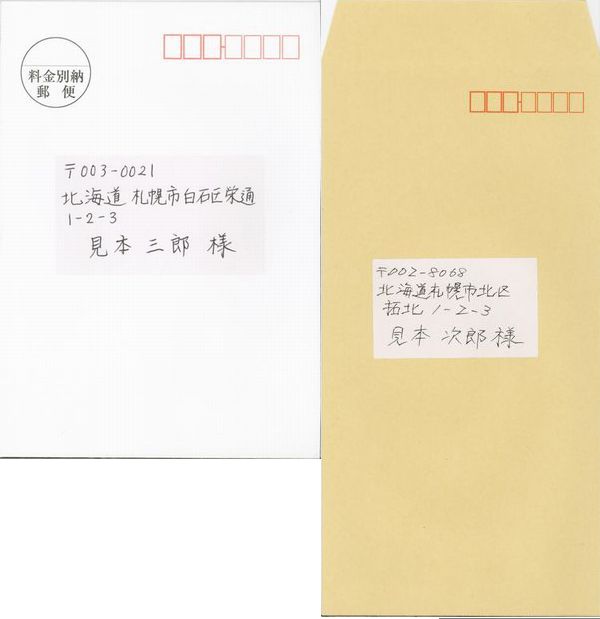 料金別納
郵便
〒003-0021
北海道 札幌市白石区栄通
1-2-3
見本 三郎 様
〒002-8068
北海道札幌市北区
拓北 1-2-3
見本 次郎 様